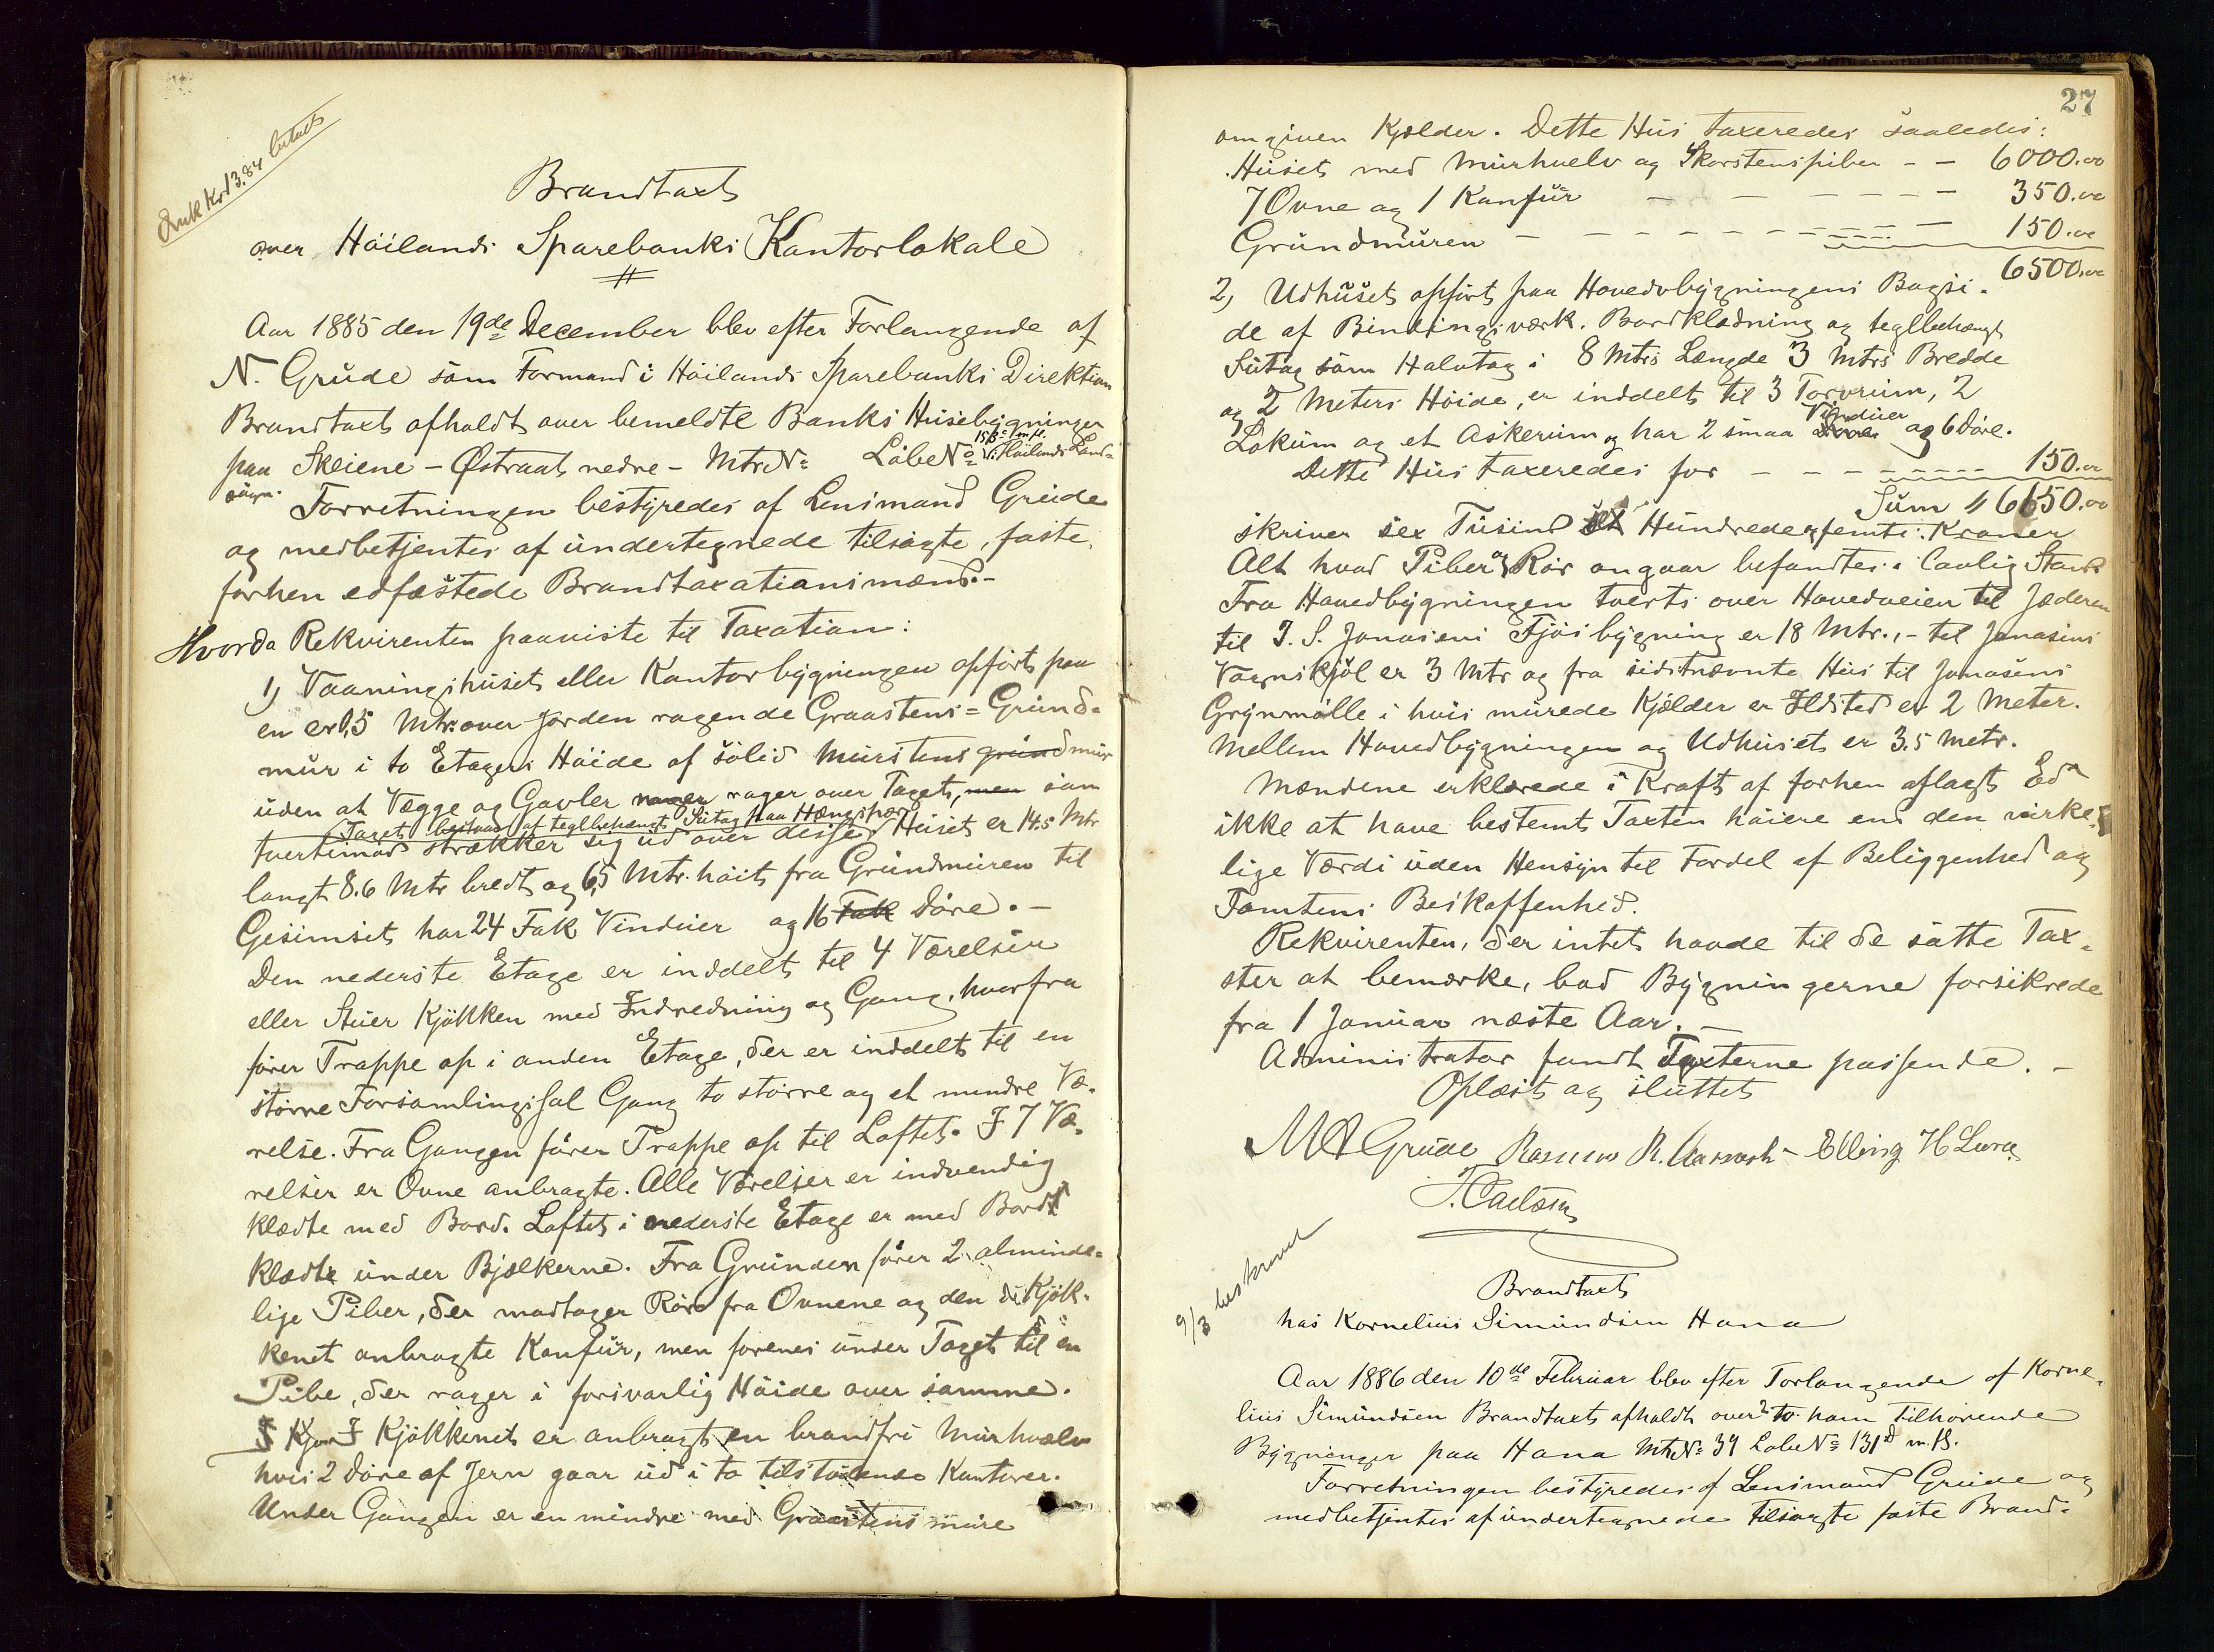 Kr 13.84 betalt
Brandtaxt
over Höilands Sparebanks Kontorlokale
Aar 1885 den 19de December blev efter Forlangende af
N. Grude som Formand i Höilands Sparebanks Direktion
Brandtaxt afholdt over bemeldte Banks Husebygninger
paa Skeiene - Østraat nedre - Mtr.No Löbe No 15 i Höilands Land=
sogn. Forretningen bestyredes af Lensmand Grude
og medbetjentes af undertegnede tilsagte, faste,
forhen edfæstede Brandtaxationsmænd.-
Hvorda Rekvirenten paaviste til Taxation:
1) Vaaningshuset eller Kontorbygningen opfört paa
en er 1,5 Mtr. over Jorden ragende Graastens=Grund=
mur i to Etagers Höide af solid Murstens grundmur
uden at Vægge og Gavler rager over Taget, men som
Taget bestaar af teglbehængt Sutag paa Hængspær
tvertimod strækker sig ud over disse. Huset er 14.5 Mtr
langt 8.6 Mtr bredt og 6,5 Mtr. höit fra Grundmuren til
Gesimset har 24 Fak Vinduer og 16 Fak Döre. -
Den nederste Etage er inddelt til 4 Værelser
eller Stuer Kjökken med Indredning og Gang, hvorfra
förer Trappe op i anden Etage, der er inddelt til en
större Forsamlingssal Gang to större og et mindre Væ=
relse. Fra Gangen förer Trappe op til Loftet. I 7 Væ=
relser er Ovne anbragte. Alle Værelser er indvendig
klædte med Bord. Loftet i nederste Etage er med Bord
klædte under Bjælkerne. Fra Grunden förer 2 alminde=
lige Piber, der modtager Rör fra Ovnene og den i Kjök=
kenet anbragte Komfur, men forenes under Taget til en
Pibe, der rager i forsvarlig Höide over samme.
I Kjökkenet er anbragt en brandfri Murhvælv
hvis 2 Döre af Jern gaar ud i to tilstödende Kontorer.
Under Gangen er en mindre med Graastens mure
27
omgiven Kjælder. Dette Hus taxeredes saaledes:
Huset med Murhvelv og Skorstenspiber - - 6000.00
7 Ovne og 1 Komfur - - - - - - 350.00
Grundmuren - - - - - - - - - - 150.00
6500.00
2) Udhuset opfört paa Hovedbygningens Bagsi=
de af Bindingsværk. Bordklædning og teglbehængt
Sutag som Halvtag i 8 Mtrs Længde 3 Mtrs Bredde
og 2 Meters Höide, er inddelt til 3 Torvrum, 2
Lokum og et Askerum og har 2 smaa Vinduer og 6 Döre.
Dette Hus taxeredes for - - - - - - - 150.00
Sum 6650.00
skriver sex Tusind sex Hundrede og femti Kroner
Alt hvad Piber og Rör angaar befandtes i lovlig Stand
Fra Hovedbygningen tverts over Hovedveien til Jæderen
til J. S. Jonasens Fjösbygning er 18 Mtr., - til Jonasens
Vognskjöl er 3 Mtr og fra sidstnævnte Hus til Jonasens
Grynmölle i hvis murede Kjælder er Ildsted er 2 Meter.
Mellem Hovedbygningen og Udhuset er 3,5 Metr.
Mændene erklærede i Kraft af forhen aflagt Ed
ikke at have bestemt Taxten höiere end den virke=
lige Værdi uden Hensyn til Fordel af Beliggenhed og
Tomtens Beskaffenhed.
Rekvirenten, der intet havde til de satte Tax=
ster at bemærke, bad Bygningerne forsikrede
fra 1 Januar næste Aar. -
Administrator fandt Taxterne passende. -
Oplæst og sluttet
M A Grude Rasmus R. Elling H Lura
9/3 beskrevet
Brandtaxt
hos Kornelius Simundsen Hana
Aar 1886 den 10de Februar blev efter Forlangende af Korne=
lius Simundsen Brandtaxt afholdt over de to ham Tilhörende
Bygninger paa Hana Mtr.No 39 Löbe No 131d m. fl.
Forretningen bestyredes af Lensmand Grude og
medbetjentes af undertegnede tilsagte faste Brand=